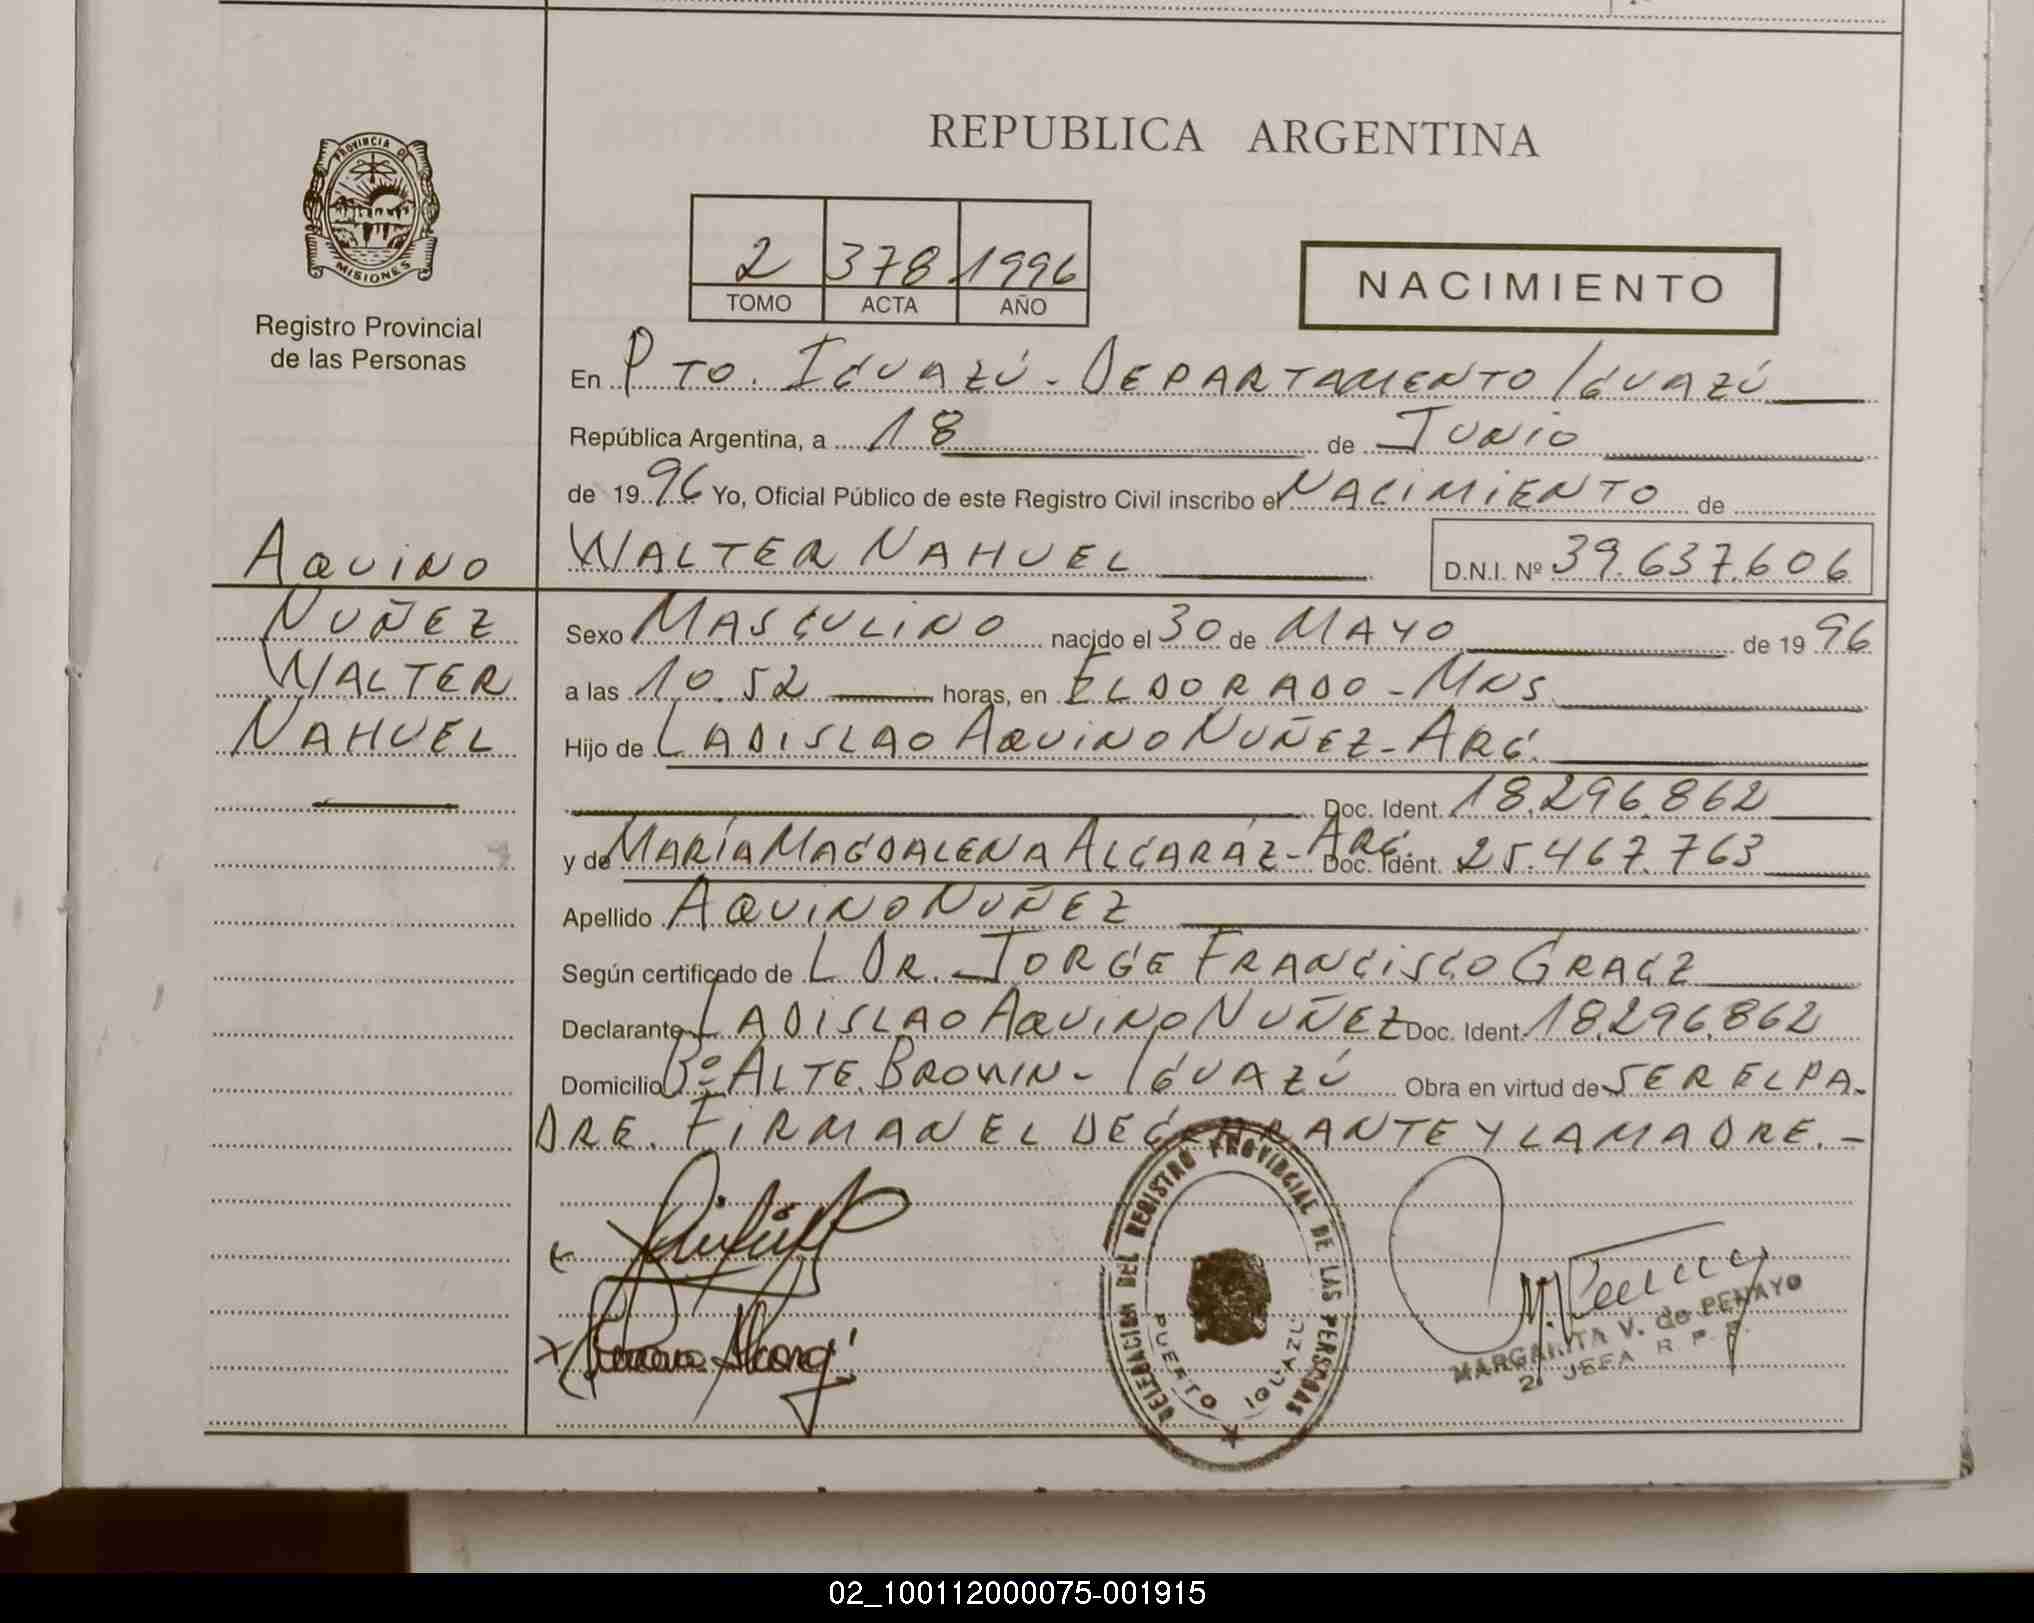 REPUBLICA ARGENTINA
PROVINCIA DE
MISIONES
Registro Provincial
de las Personas
2 378 1996
TOMO ACTA AÑO
NACIMIENTO
En PTO. IGUAZÚ - DEPARTAMENTO IGUAZÚ
República Argentina, a 18 de JUNIO
de 1996 Yo, Oficial Público de este Registro Civil inscribo el NACIMIENTO de
WALTER NAHUEL D.N.I. Nº 39.637.606
AQUINO
NUÑEZ
WALTER
NAHUEL
Sexo MASCULINO nacido el 30 de MAYO de 1996
a las 10.52 horas, en ELDORADO - MNS.
Hijo de LADISLAO AQUINO NUÑEZ - ARG.
Doc. Ident. 18.296.862
y de MARÍA MAGDALENA ALCARÁZ - ARG. Doc. Ident. 25.467.763
Apellido AQUINO NUÑEZ
Según certificado de L DR. JORGE FRANCISCO
Declarante LADISLAO AQUINO NUÑEZ Doc. Ident. 18.296.862
Domicilio Bº ALTE. BROWIN - IGUAZÚ Obra en virtud de SER EL PA-
DRE. FIRMAN EL DECLARANTE Y LA MADRE. -
DELEGACION DEL REGISTRO PROVINCIAL DE LAS PERSONAS
PUERTO IGUAZU
MARGARITA V. de PENAYO
2ª JEFA R. P. P.
02_100112000075-001915